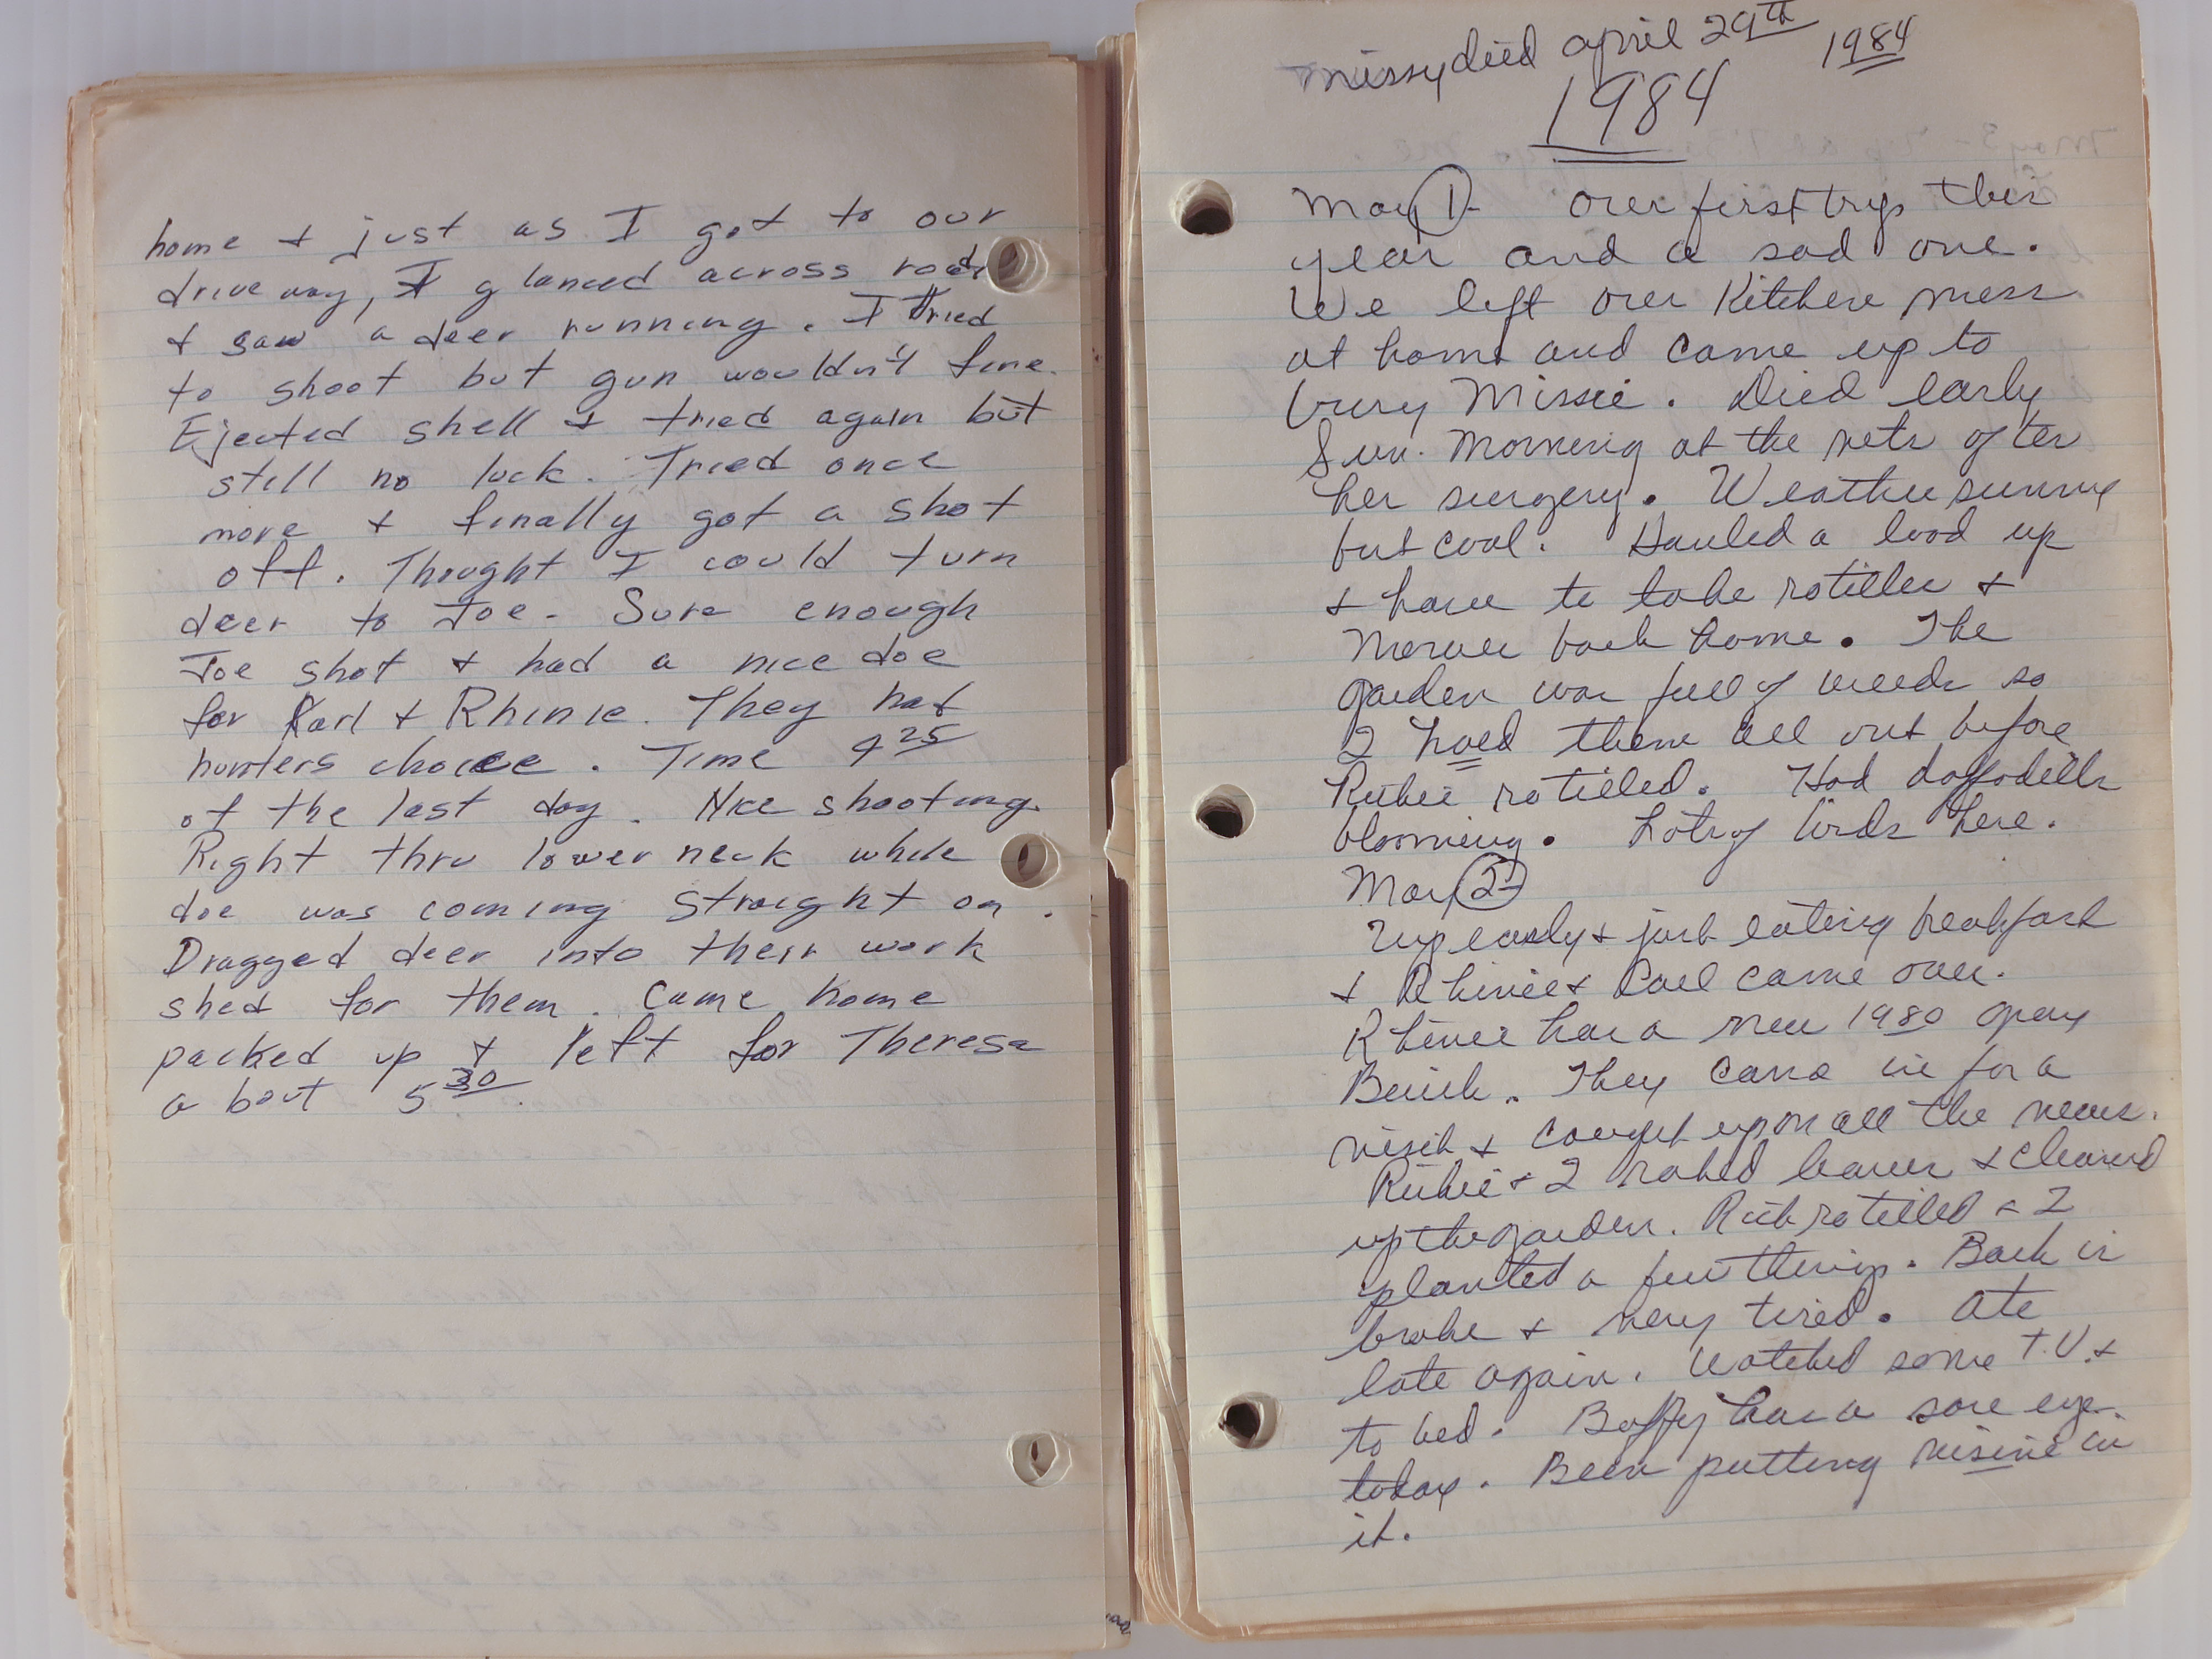 home + just as I got to our
driveway, I glanced across road
+ saw a deer running. I tried
to shoot but gun wouldn't fire.
Ejected shell + tried again but
still no luck. Tried once
more + finally got a shot
off. Thought I could turn
deer to Joe. Sure enough
Joe shot + had a nice doe
for Karl + Rhinie. They had
hunters choice. Time 4 25
of the last day. Nice shooting.
Right thru lower neck while
doe was coming straight on.
Dragged deer into their work
shed for them. Came home
packed up + left for Theresa
about 5 30.
Missy died april 29th 1984
1984
May 1- Our first trip this
year and a sad one.
We left our Kitchen mess
at home and came up to
bury Missie. Died early
Sun. Morning at the vets after
her surgery. Weather sunny
but cool. Hauled a load up
+ have to take rotiller +
Mower back home. The
garden was full of weeds so
I hoed them all out before
Richie rotilled. Had daffodills
blooming. Lots of birds here.
May 2-
Up early + just eating breakfast
+ Rhinie + Carl came over.
Rhinie has a new 1980 gray
Buick. They came in for a
visit + caught up on all the news.
Richie + I raked leaves + cleaned
up the garden. Rich rotilled + I
planted a few things. Back is
broke + very tired. Ate
late again. Watched some T.V. +
to bed. Buffy has a sore eye
today. Been putting visine in
it.